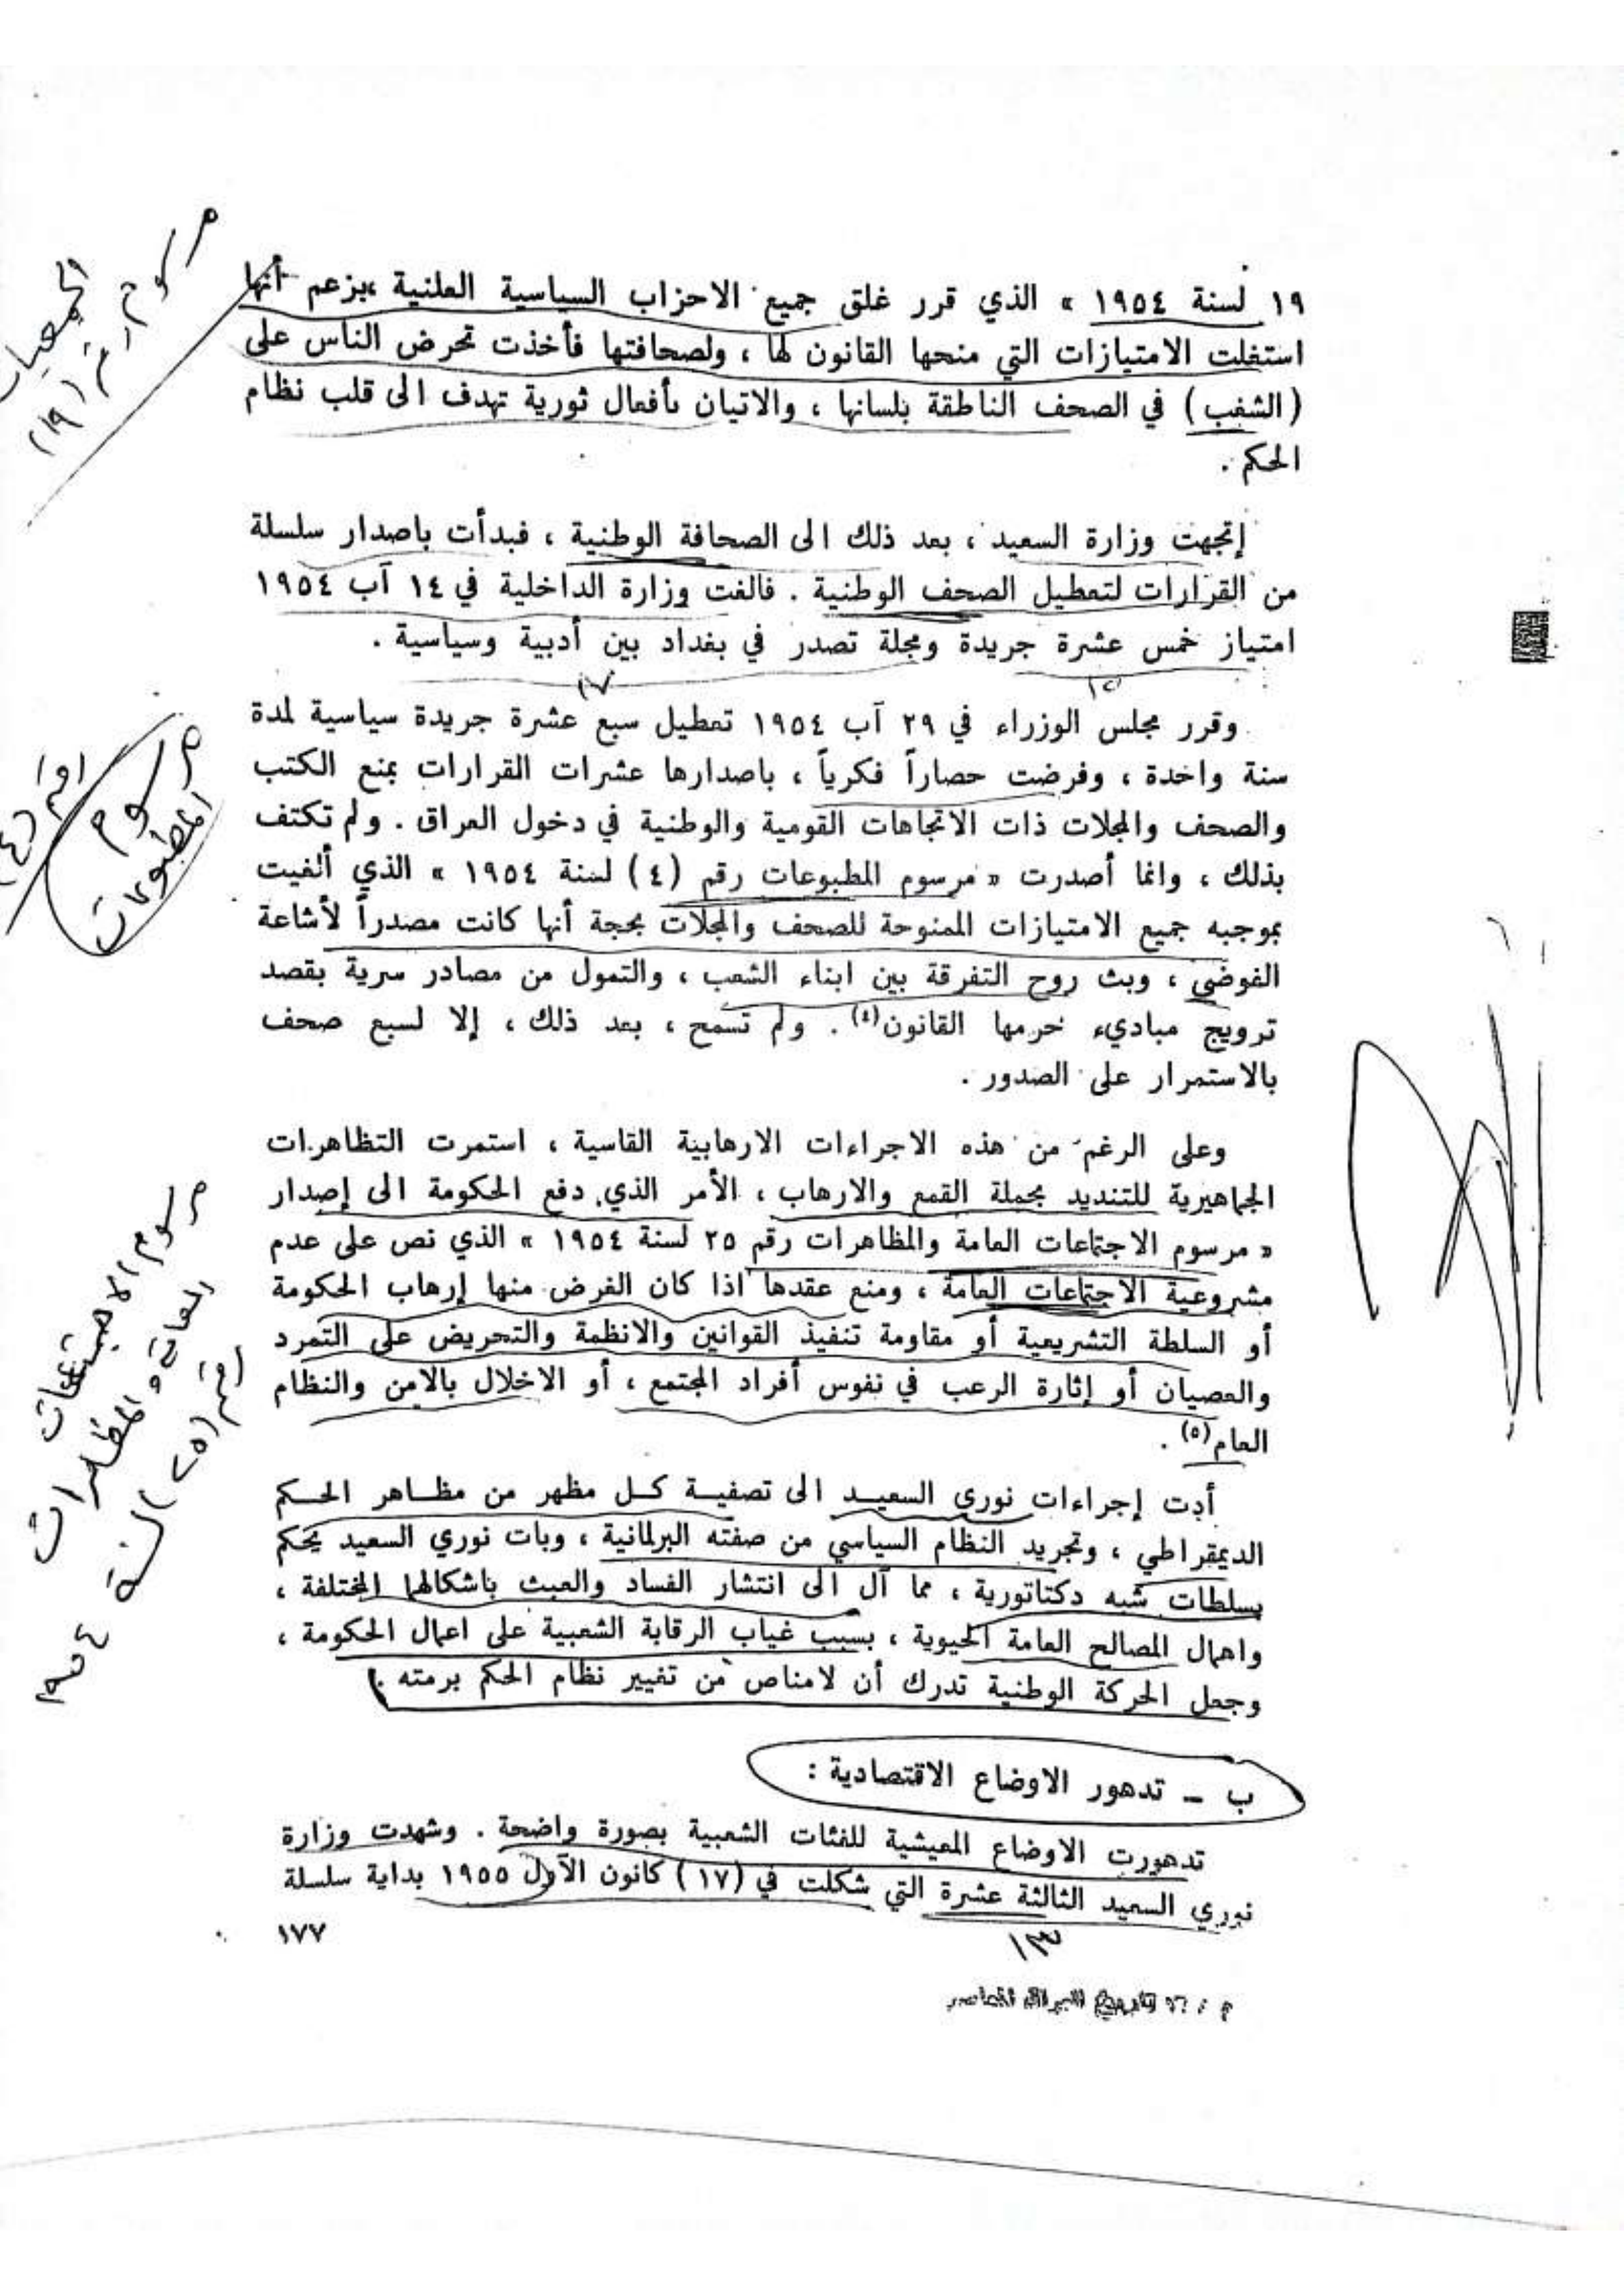 ١٩ لسنة ١٩٥٤ » الذي قرر غلق جميع الاحزاب السياسية العلنية ،بزعم أنها
استغلت الامتيازات التي منحها القانون لها ، ولصحافتها فأخذت تحرض الناس على
(الشغب) في الصحف الناطقة بلسانها ، والاتيان بأفعال ثورية تهدف الى قلب نظام
الحكم .
مرسوم
رقم (١٩)
إتجهت وزارة السعيد ، بعد ذلك الى الصحافة الوطنية ، فبدأت باصدار سلسلة
من القرارات لتعطيل الصحف الوطنية . فالغت وزارة الداخلية في ١٤ آب ١٩٥٤
امتياز خمس عشرة جريدة ومجلة تصدر في بغداد بين أدبية وسياسية .
١٥
١٧
وقرر مجلس الوزراء في ٢٩ آب ١٩٥٤ تعطيل سبع عشرة جريدة سياسية لمدة
سنة واحدة ، وفرضت حصاراً فكرياً ، باصدارها عشرات القرارات بمنع الكتب
والصحف والمجلات ذات الاتجاهات القومية والوطنية في دخول العراق . ولم تكتف
بذلك ، وانما أصدرت « مرسوم المطبوعات رقم (٤) لسنة ١٩٥٤ » الذي ألغيت
بموجبه جميع الامتيازات الممنوحة للصحف والمجلات بحجة أنها كانت مصدراً لأشاعة
الفوضى ، وبث روح التفرقة بين ابناء الشعب ، والتمول من مصادر سرية بقصد
ترويج مباديء حرمها القانون(٤) . ولم تسمح ، بعد ذلك ، إلا لسبع صحف
بالاستمرار على الصدور .
مرسوم
المطبوعات
رقم (٤)
وعلى الرغم من هذه الاجراءات الارهابية القاسية ، استمرت التظاهرات
الجماهيرية للتنديد بحملة القمع والارهاب ، الأمر الذي دفع الحكومة الى إصدار
« مرسوم الاجتماعات العامة والمظاهرات رقم ٢٥ لسنة ١٩٥٤ » الذي نص على عدم
مشروعية الاجتماعات العامة ، ومنع عقدها اذا كان الغرض منها إرهاب الحكومة
أو السلطة التشريعية أو مقاومة تنفيذ القوانين والانظمة والتحريض على التمرد
والعصيان أو إثارة الرعب في نفوس أفراد المجتمع ، أو الاخلال بالامن والنظام
العام(٥) .
مرسوم الاجتماعات
العامة والمظاهرات
رقم (٢٥) لسنة ١٩٥٤
أدت إجراءات نوري السعيد الى تصفية كل مظهر من مظاهر الحكم
الديمقراطي ، وتجريد النظام السياسي من صفته البرلمانية ، وبات نوري السعيد يحكم
بسلطات شبه دكتاتورية ، مما آل الى انتشار الفساد والعبث باشكالها المختلفة ،
واهمال المصالح العامة الحيوية ، بسبب غياب الرقابة الشعبية على اعمال الحكومة ،
وجعل الحركة الوطنية تدرك أن لامناص من تغيير نظام الحكم برمته .
ب - تدهور الاوضاع الاقتصادية :
تدهورت الاوضاع المعيشية للفئات الشعبية بصورة واضحة . وشهدت وزارة
نوري السعيد الثالثة عشرة التي شكلت في (١٧) كانون الأول ١٩٥٥ بداية سلسلة
١٣
١٧٧